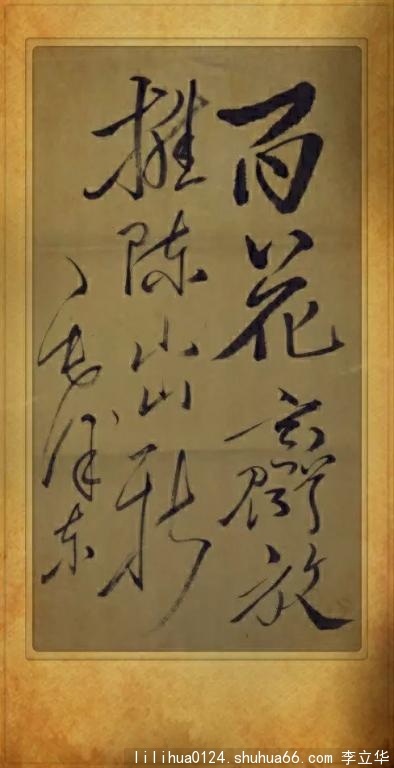 百花齊放
推陈出新
毛泽东
lilihua0124.shuhua66.com 李立华